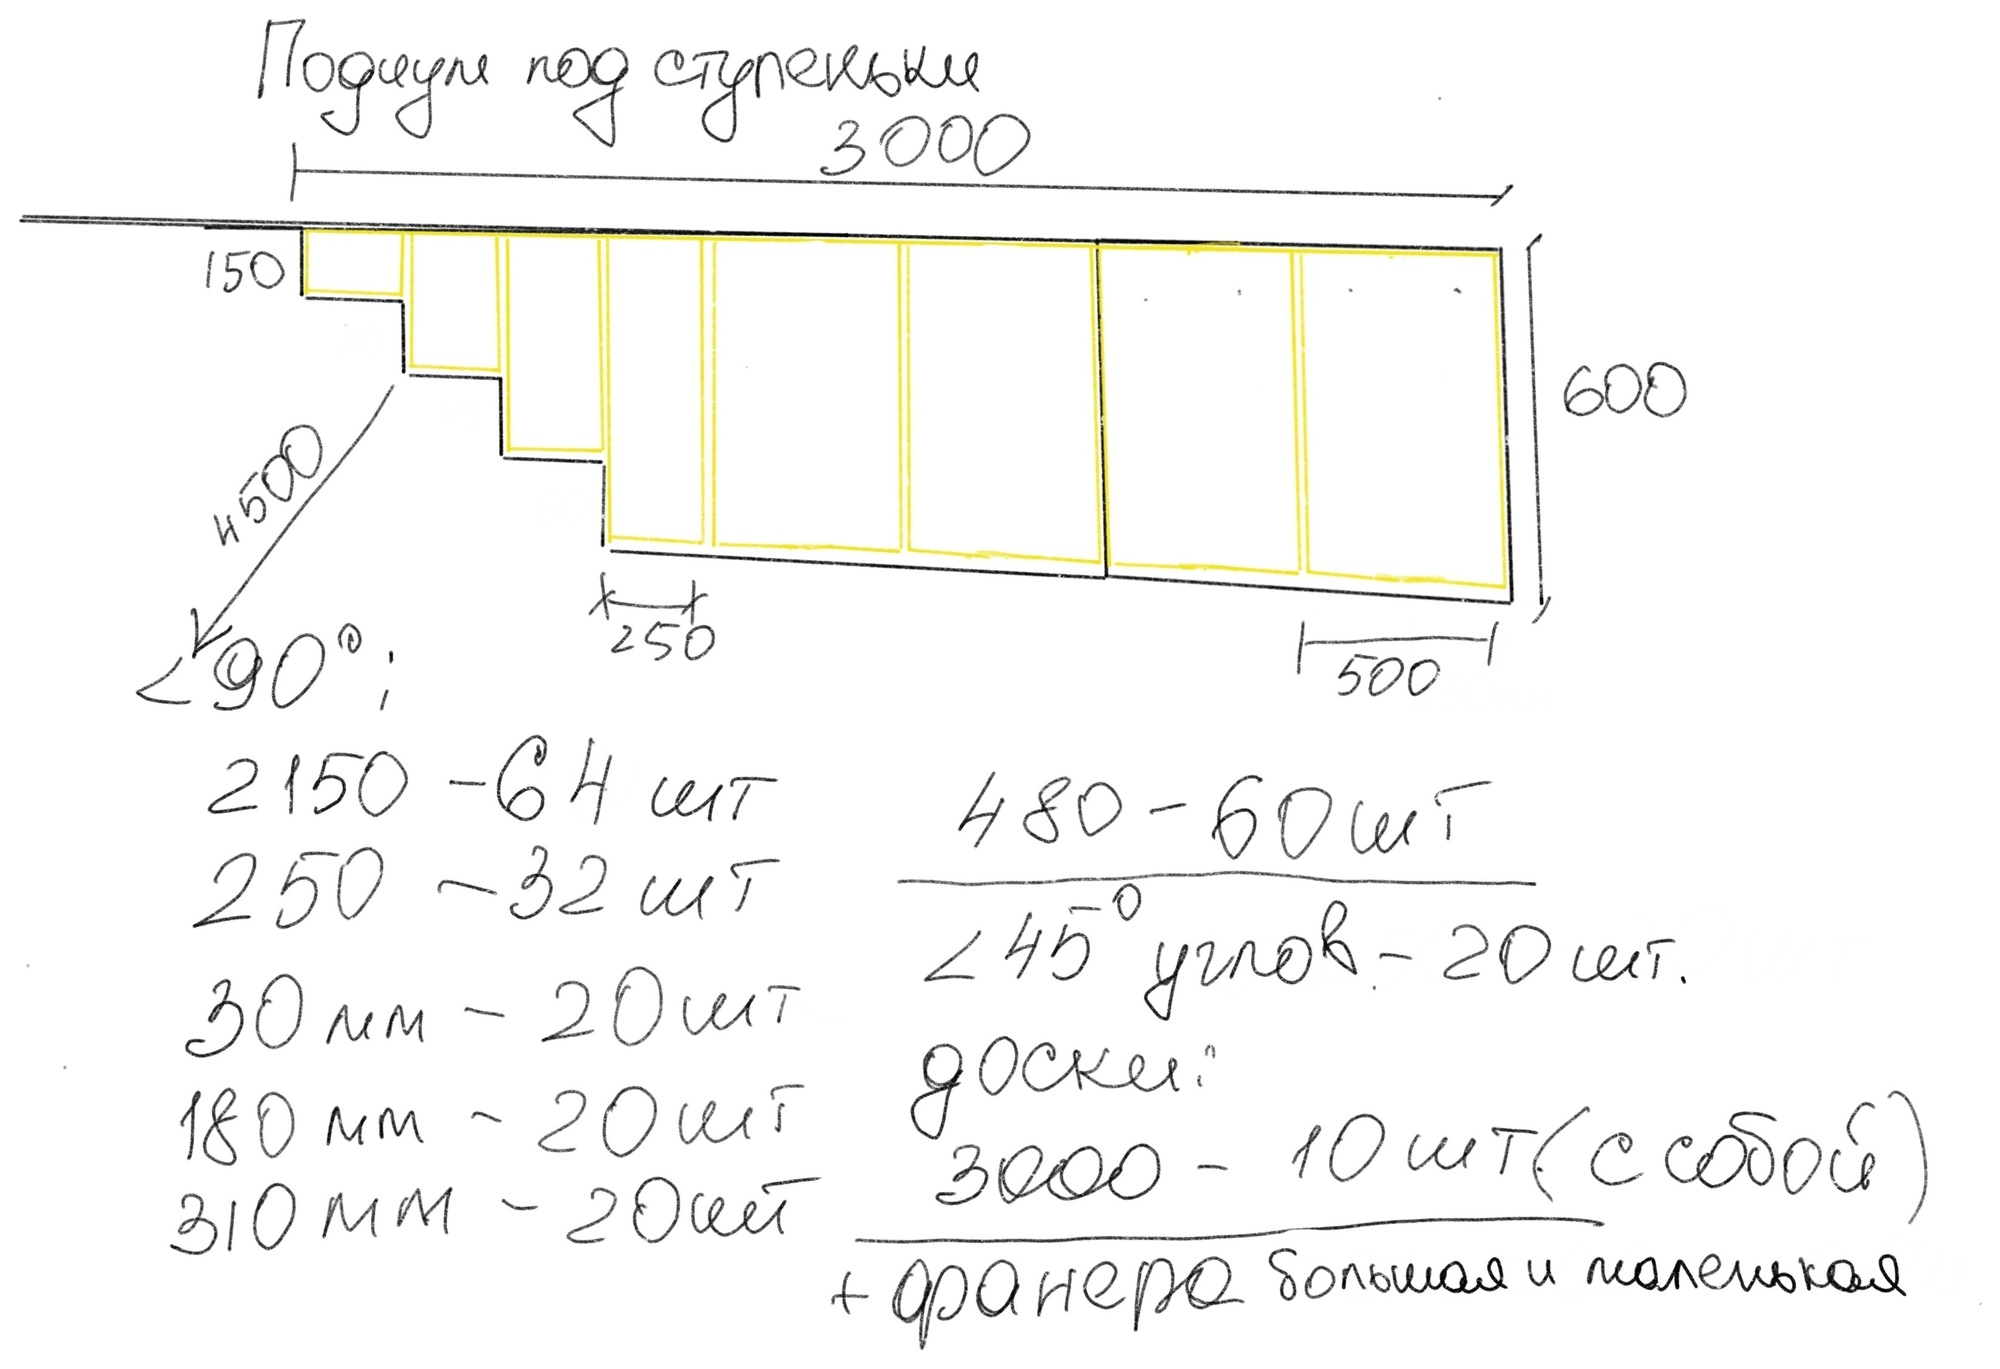 Подиум под ступеньки
3000
150
600
4500
250
500
<90°:
2150 - 64 шт
250 - 32 шт
30 мм - 20 шт
180 мм - 20 шт
310 мм - 20 шт
480 - 60 шт
<45° углов - 20 шт.
доски:
3000 - 10 шт (с собой)
+ фанера большая и маленькая